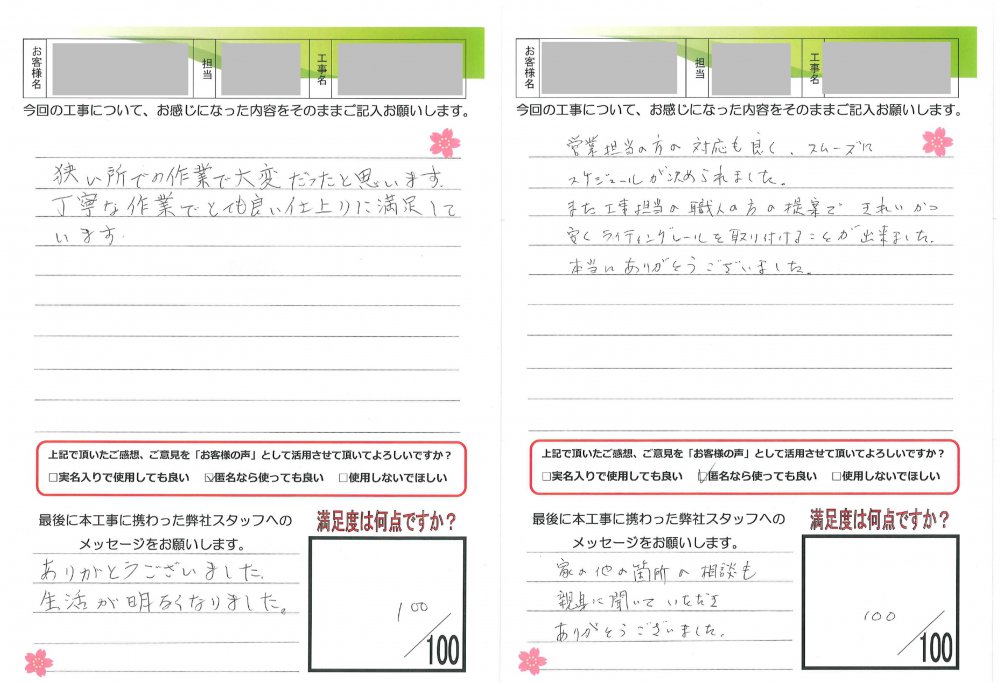 お客様名
担当
工事名
今回の工事について、お感じになった内容をそのままご記入お願いします。
狭い所での作業で大変だったと思います。
丁寧な作業でとても良い仕上りに満足して
います。
上記で頂いたご感想、ご意見を「お客様の声」として活用させて頂いてよろしいですか？
□実名入りで使用しても良い ☑匿名なら使っても良い □使用しないでほしい
最後に本工事に携わった弊社スタッフへの
メッセージをお願いします。
ありがとうございました。
生活が明るくなりました。
満足度は何点ですか？
100
／100
お客様名
担当
工事名
今回の工事について、お感じになった内容をそのままご記入お願いします。
営業担当の方の対応も良く、スムーズに
スケジュールが決められました。
また工事担当の職人の方の提案できれいかつ
安くライティングレールを取り付けることが出来ました。
本当にありがとうございました。
上記で頂いたご感想、ご意見を「お客様の声」として活用させて頂いてよろしいですか？
□実名入りで使用しても良い ☑匿名なら使っても良い □使用しないでほしい
最後に本工事に携わった弊社スタッフへの
メッセージをお願いします。
家の他の箇所の相談も
親身に聞いていただき
ありがとうございました。
満足度は何点ですか？
100
／100